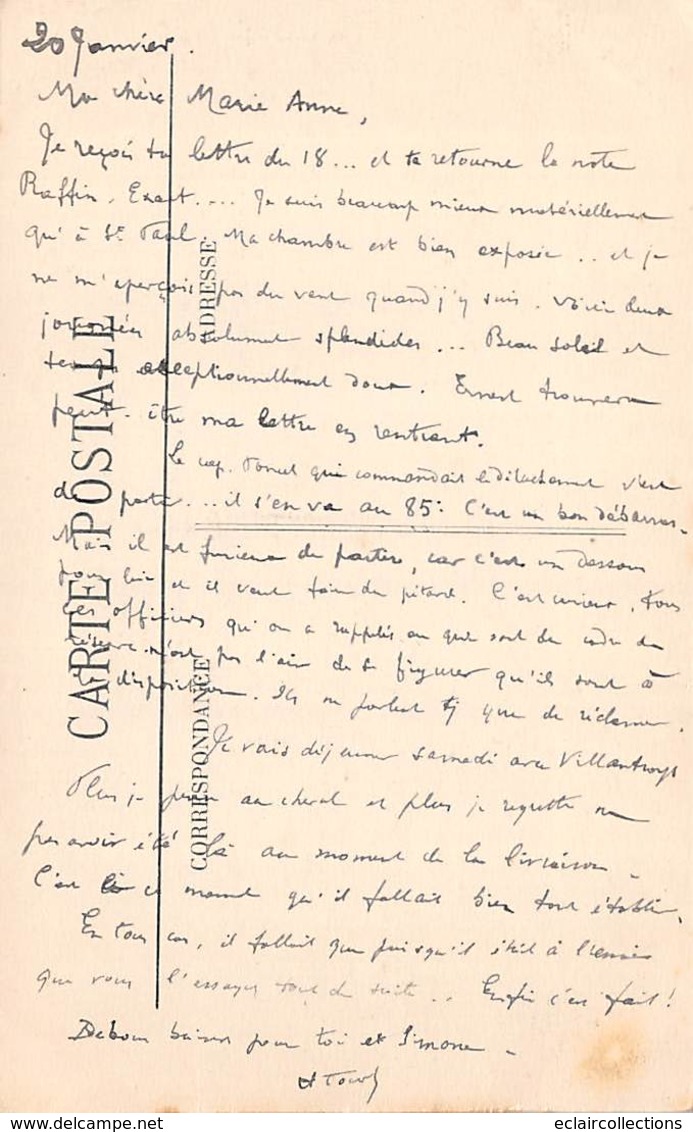 20 Janvier.
Ma chère Marie Anne,
Je reçois ta lettre du 18... et te retourne la note
Raffin. Exact.... Je suis beaucoup mieux matériellement
qu'à St Paul. Ma chambre est bien exposée.. et je
ne m'aperçois pas du vent quand j'y suis. Voici deux
journées absolument splendides... Beau soleil et
temps exceptionnellement doux. Ernest trouvera
peut-être ma lettre en rentrant.
Le cap. qui commandait le détachement vient
de partir... il s'en va au 85e. C'est un bon débarras.
Mais il est furieux de partir, car c'est un dessous
pour lui et il veut faire du pétard. C'est curieux, tous
les officiers qu'on a rappelés ou qui sont du cadre de
réserve n'ont pas l'air de se figurer qu'ils sont à
la disposition. Ils ne parlent que de réclamer.
Je vais déjeuner samedi avec Villantroys
Plus je pense au cheval et plus je regrette ne
pas avoir été là au moment de la livraison.
C'est à ce moment qu'il fallait bien tout établir.
En tous cas, il fallait que puisqu'il était à l'essai
que vous l'essayez tout de suite.. Enfin c'est fait!
De bons baisers pour toi et Simone.
CARTE POSTALE
CORRESPONDANCE
ADRESSE
eclaircollections